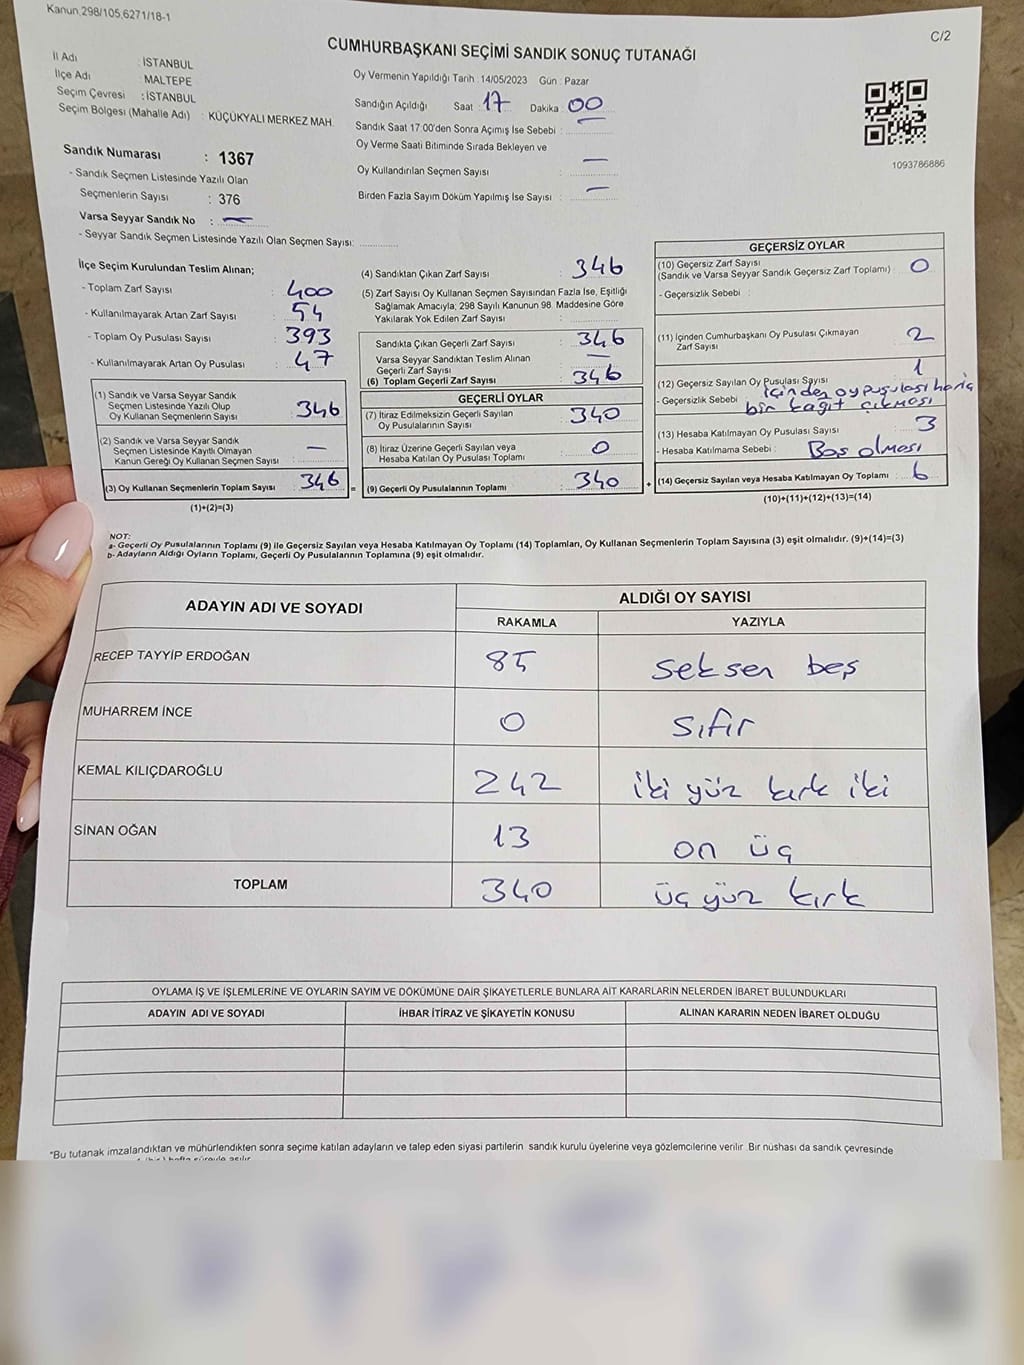 Kanun.298/105,6271/18-1
C/2
CUMHURBAŞKANI SEÇİMİ SANDIK SONUÇ TUTANAĞI
İl Adı : İSTANBUL
İlçe Adı MALTEPE
Seçim Çevresi : İSTANBUL
Seçim Bölgesi (Mahalle Adı) : KÜÇÜKYALI MERKEZ MAH.
Sandık Numarası : 1367
- Sandık Seçmen Listesinde Yazılı Olan
Seçmenlerin Sayısı : 376
Varsa Seyyar Sandık No : —
- Seyyar Sandık Seçmen Listesinde Yazılı Olan Seçmen Sayısı:
Oy Vermenin Yapıldığı Tarih : 14/05/2023 Gün : Pazar
Sandığın Açıldığı Saat : 17 Dakika : 00
Sandık Saat 17:00'den Sonra Açımış İse Sebebi :
Oy Verme Saati Bitiminde Sırada Bekleyen ve
Oy Kullandırılan Seçmen Sayısı : —
Birden Fazla Sayım Döküm Yapılmış İse Sayısı : —
1093786886
İlçe Seçim Kurulundan Teslim Alınan;
- Toplam Zarf Sayısı : 400
- Kullanılmayarak Artan Zarf Sayısı : 54
- Toplam Oy Pusulası Sayısı : 393
- Kullanılmayarak Artan Oy Pusulası : 47
(1) Sandık ve Varsa Seyyar Sandık
Seçmen Listesinde Yazılı Olup
Oy Kullanan Seçmenlerin Sayısı : 346
(2) Sandık ve Varsa Seyyar Sandık
Seçmen Listesinde Kayıtlı Olmayan
Kanun Gereği Oy Kullanan Seçmen Sayısı : —
(3) Oy Kullanan Seçmenlerin Toplam Sayısı : 346 =
(1)+(2)=(3)
(4) Sandıktan Çıkan Zarf Sayısı : 346
(5) Zarf Sayısı Oy Kullanan Seçmen Sayısından Fazla İse, Eşitliği
Sağlamak Amacıyla; 298 Sayılı Kanunun 98. Maddesine Göre
Yakılarak Yok Edilen Zarf Sayısı :
Sandıkta Çıkan Geçerli Zarf Sayısı : 346
Varsa Seyyar Sandıktan Teslim Alınan
Geçerli Zarf Sayısı : —
(6) Toplam Geçerli Zarf Sayısı : 346
GEÇERLİ OYLAR
(7) İtiraz Edilmeksizin Geçerli Sayılan
Oy Pusulalarının Sayısı : 340
(8) İtiraz Üzerine Geçerli Sayılan veya
Hesaba Katılan Oy Pusulası Toplamı : 0
(9) Geçerli Oy Pusulalarının Toplamı : 340 +
GEÇERSİZ OYLAR
(10) Geçersiz Zarf Sayısı
(Sandık ve Varsa Seyyar Sandık Geçersiz Zarf Toplamı) : 0
- Geçersizlik Sebebi :
(11) İçinden Cumhurbaşkanı Oy Pusulası Çıkmayan
Zarf Sayısı : 2
(12) Geçersiz Sayılan Oy Pusulası Sayısı : 1
- Geçersizlik Sebebi : içinden oy pusulası hariç
bir kağıt çıkması
(13) Hesaba Katılmayan Oy Pusulası Sayısı : 3
- Hesaba Katılmama Sebebi : Boş olması
(14) Geçersiz Sayılan veya Hesaba Katılmayan Oy Toplamı : 6
(10)+(11)+(12)+(13)=(14)
NOT:
a- Geçerli Oy Pusulalarının Toplamı (9) ile Geçersiz Sayılan veya Hesaba Katılmayan Oy Toplamı (14) Toplamları, Oy Kullanan Seçmenlerin Toplam Sayısına (3) eşit olmalıdır. (9)+(14)=(3)
b- Adayların Aldığı Oyların Toplamı, Geçerli Oy Pusulalarının Toplamına (9) eşit olmalıdır.
ADAYIN ADI VE SOYADI ALDIĞI OY SAYISI
RAKAMLA YAZIYLA
RECEP TAYYİP ERDOĞAN 85 seksen beş
MUHARREM İNCE 0 sıfır
KEMAL KILIÇDAROĞLU 242 iki yüz kırk iki
SİNAN OĞAN 13 on üç
TOPLAM 340 üç yüz kırk
OYLAMA İŞ VE İŞLEMLERİNE VE OYLARIN SAYIM VE DÖKÜMÜNE DAİR ŞİKAYETLERLE BUNLARA AİT KARARLARIN NELERDEN İBARET BULUNDUKLARI
ADAYIN ADI VE SOYADI İHBAR İTİRAZ VE ŞİKAYETİN KONUSU ALINAN KARARIN NEDEN İBARET OLDUĞU
*Bu tutanak imzalandıktan ve mühürlendikten sonra seçime katılan adayların ve talep eden siyasi partilerin sandık kurulu üyelerine veya gözlemcilerine verilir. Bir nüshası da sandık çevresinde